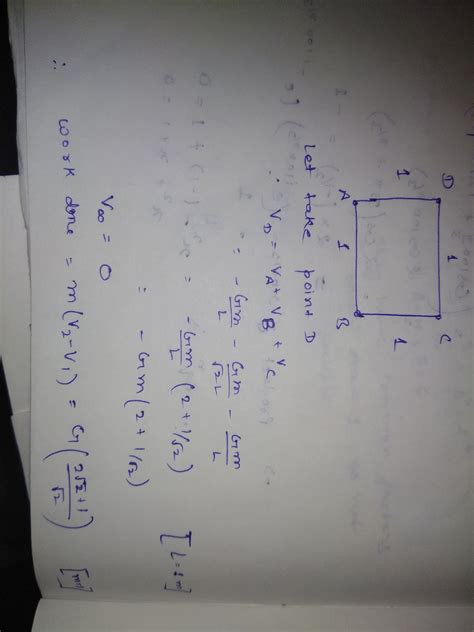 D 1 C
1 1
A 1 B
Let take point D
V_D = V_A + V_B + V_C
= - Gm/L - Gm/√2L - Gm/L
= - Gm/L (2 + 1/√2)
= - Gm (2 + 1/√2)
V∞ = 0
∴ work done = m(V₂ - V₁) = G (2√2+1/√2)